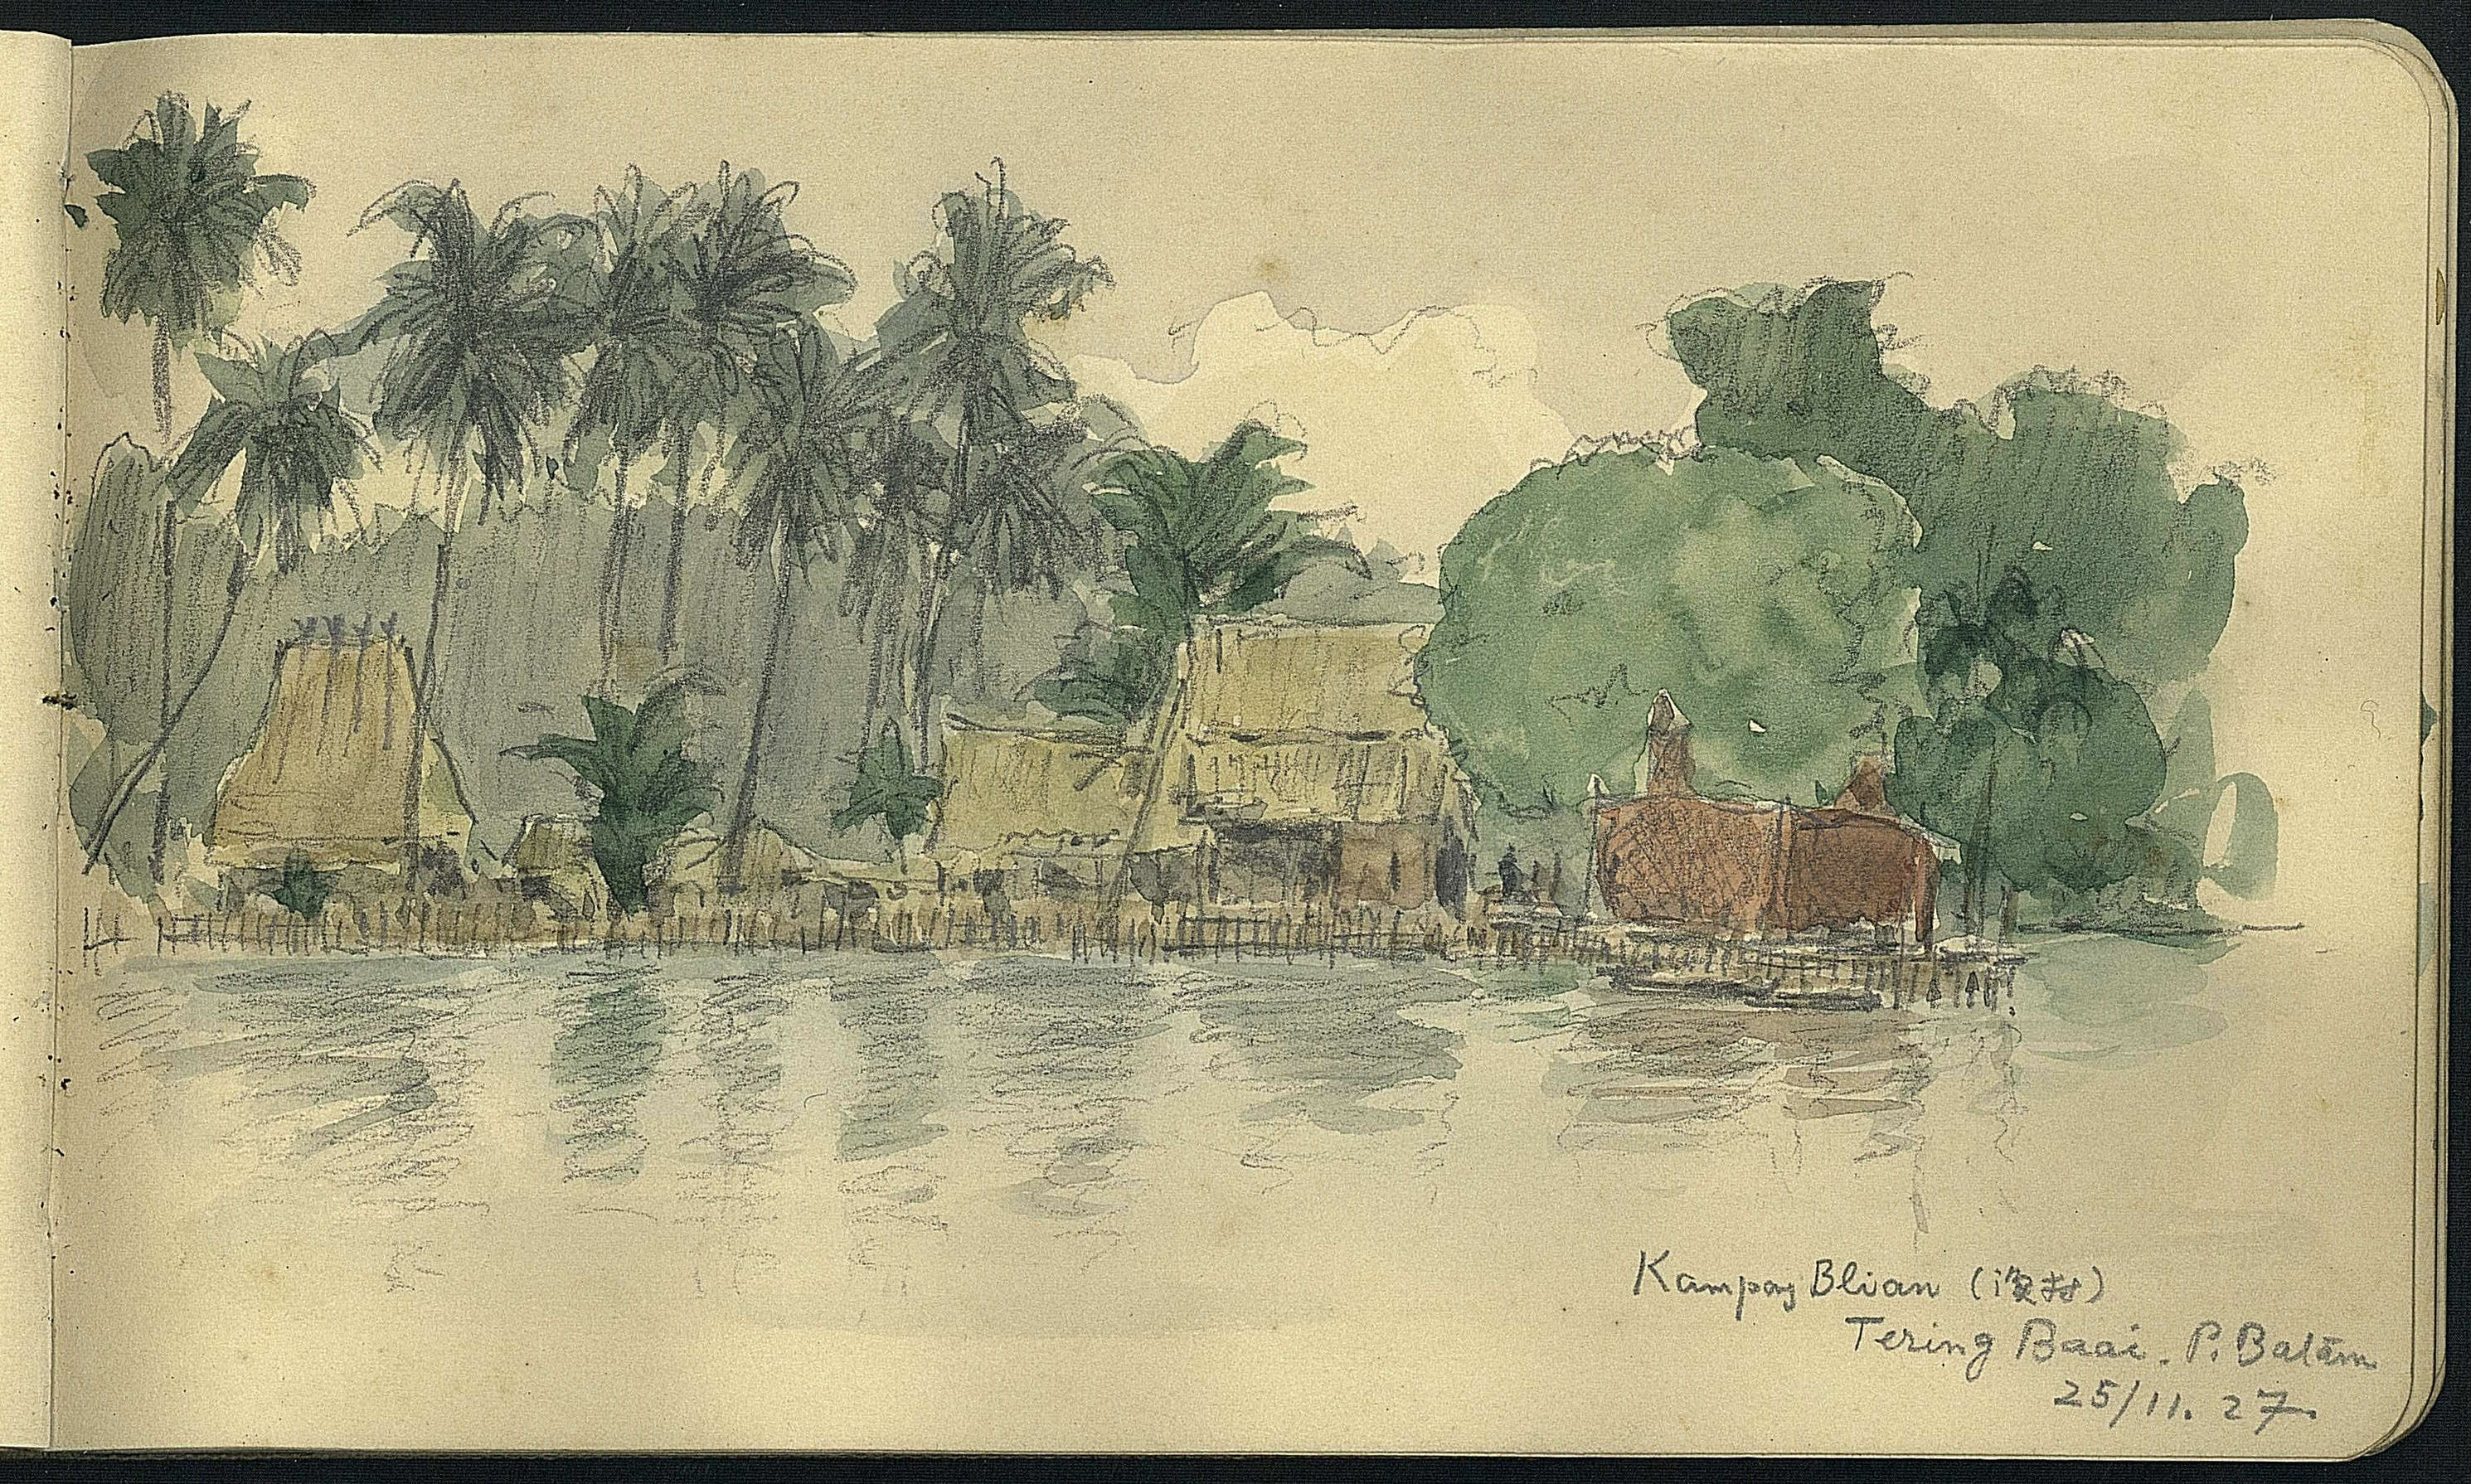 Kampong Blian (漁村)
Tering Baai. P. Batam
25/11. 27.